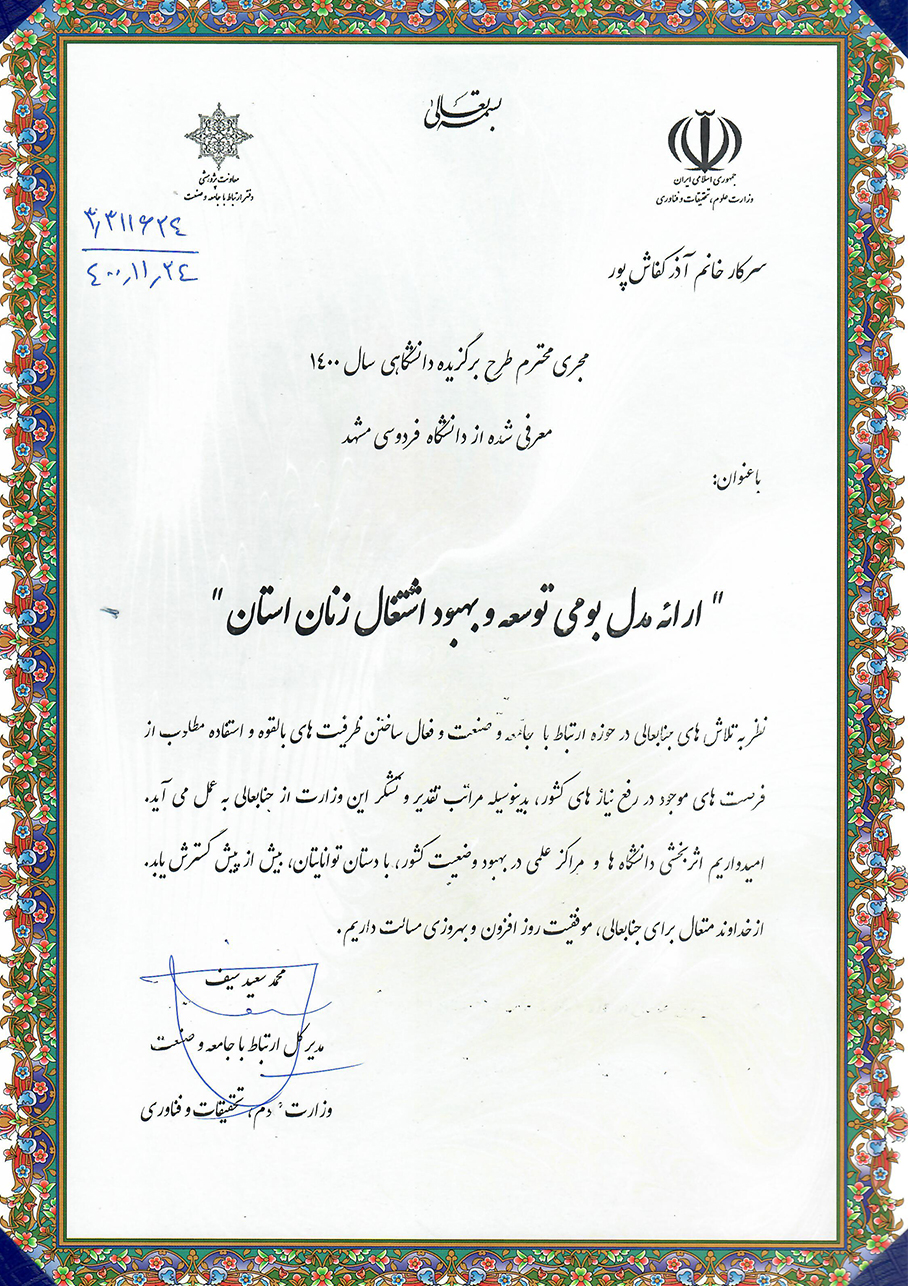 بسمه تعالی
جمهوری اسلامی ایران
وزارت علوم، تحقیقات و فناوری
معاونت پژوهشی
دفتر ارتباط با جامعه و صنعت
۳٫۳۱۱۶۲۴
۴۰۰٫۱۱٫۲۴
سرکار خانم آذر کفاش پور
مجری محترم طرح برگزیده دانشگاهی سال ۱۴۰۰
معرفی شده از دانشگاه فردوسی مشهد
با عنوان:
" ارائه مدل بومی توسعه و بهبود اشتغال زنان استان "
نظر به تلاش های جنابعالی در حوزه ارتباط با جامعه و صنعت و فعال ساختن ظرفیت های بالقوه و استفاده مطلوب از
فرصت های موجود در رفع نیاز های کشور، بدینوسیله مراتب تقدیر و تشکر این وزارت از جنابعالی به عمل می آید.
امیدواریم اثربخشی دانشگاه ها و مراکز علمی در بهبود وضعیت کشور، با دستان توانایتان، بیش از پیش گسترش یابد.
از خداوند متعال برای جنابعالی، موفقیت روز افزون و بهروزی مسالت داریم.
محمد سعید سیف
مدیر کل ارتباط با جامعه و صنعت
وزارت علوم، تحقیقات و فناوری